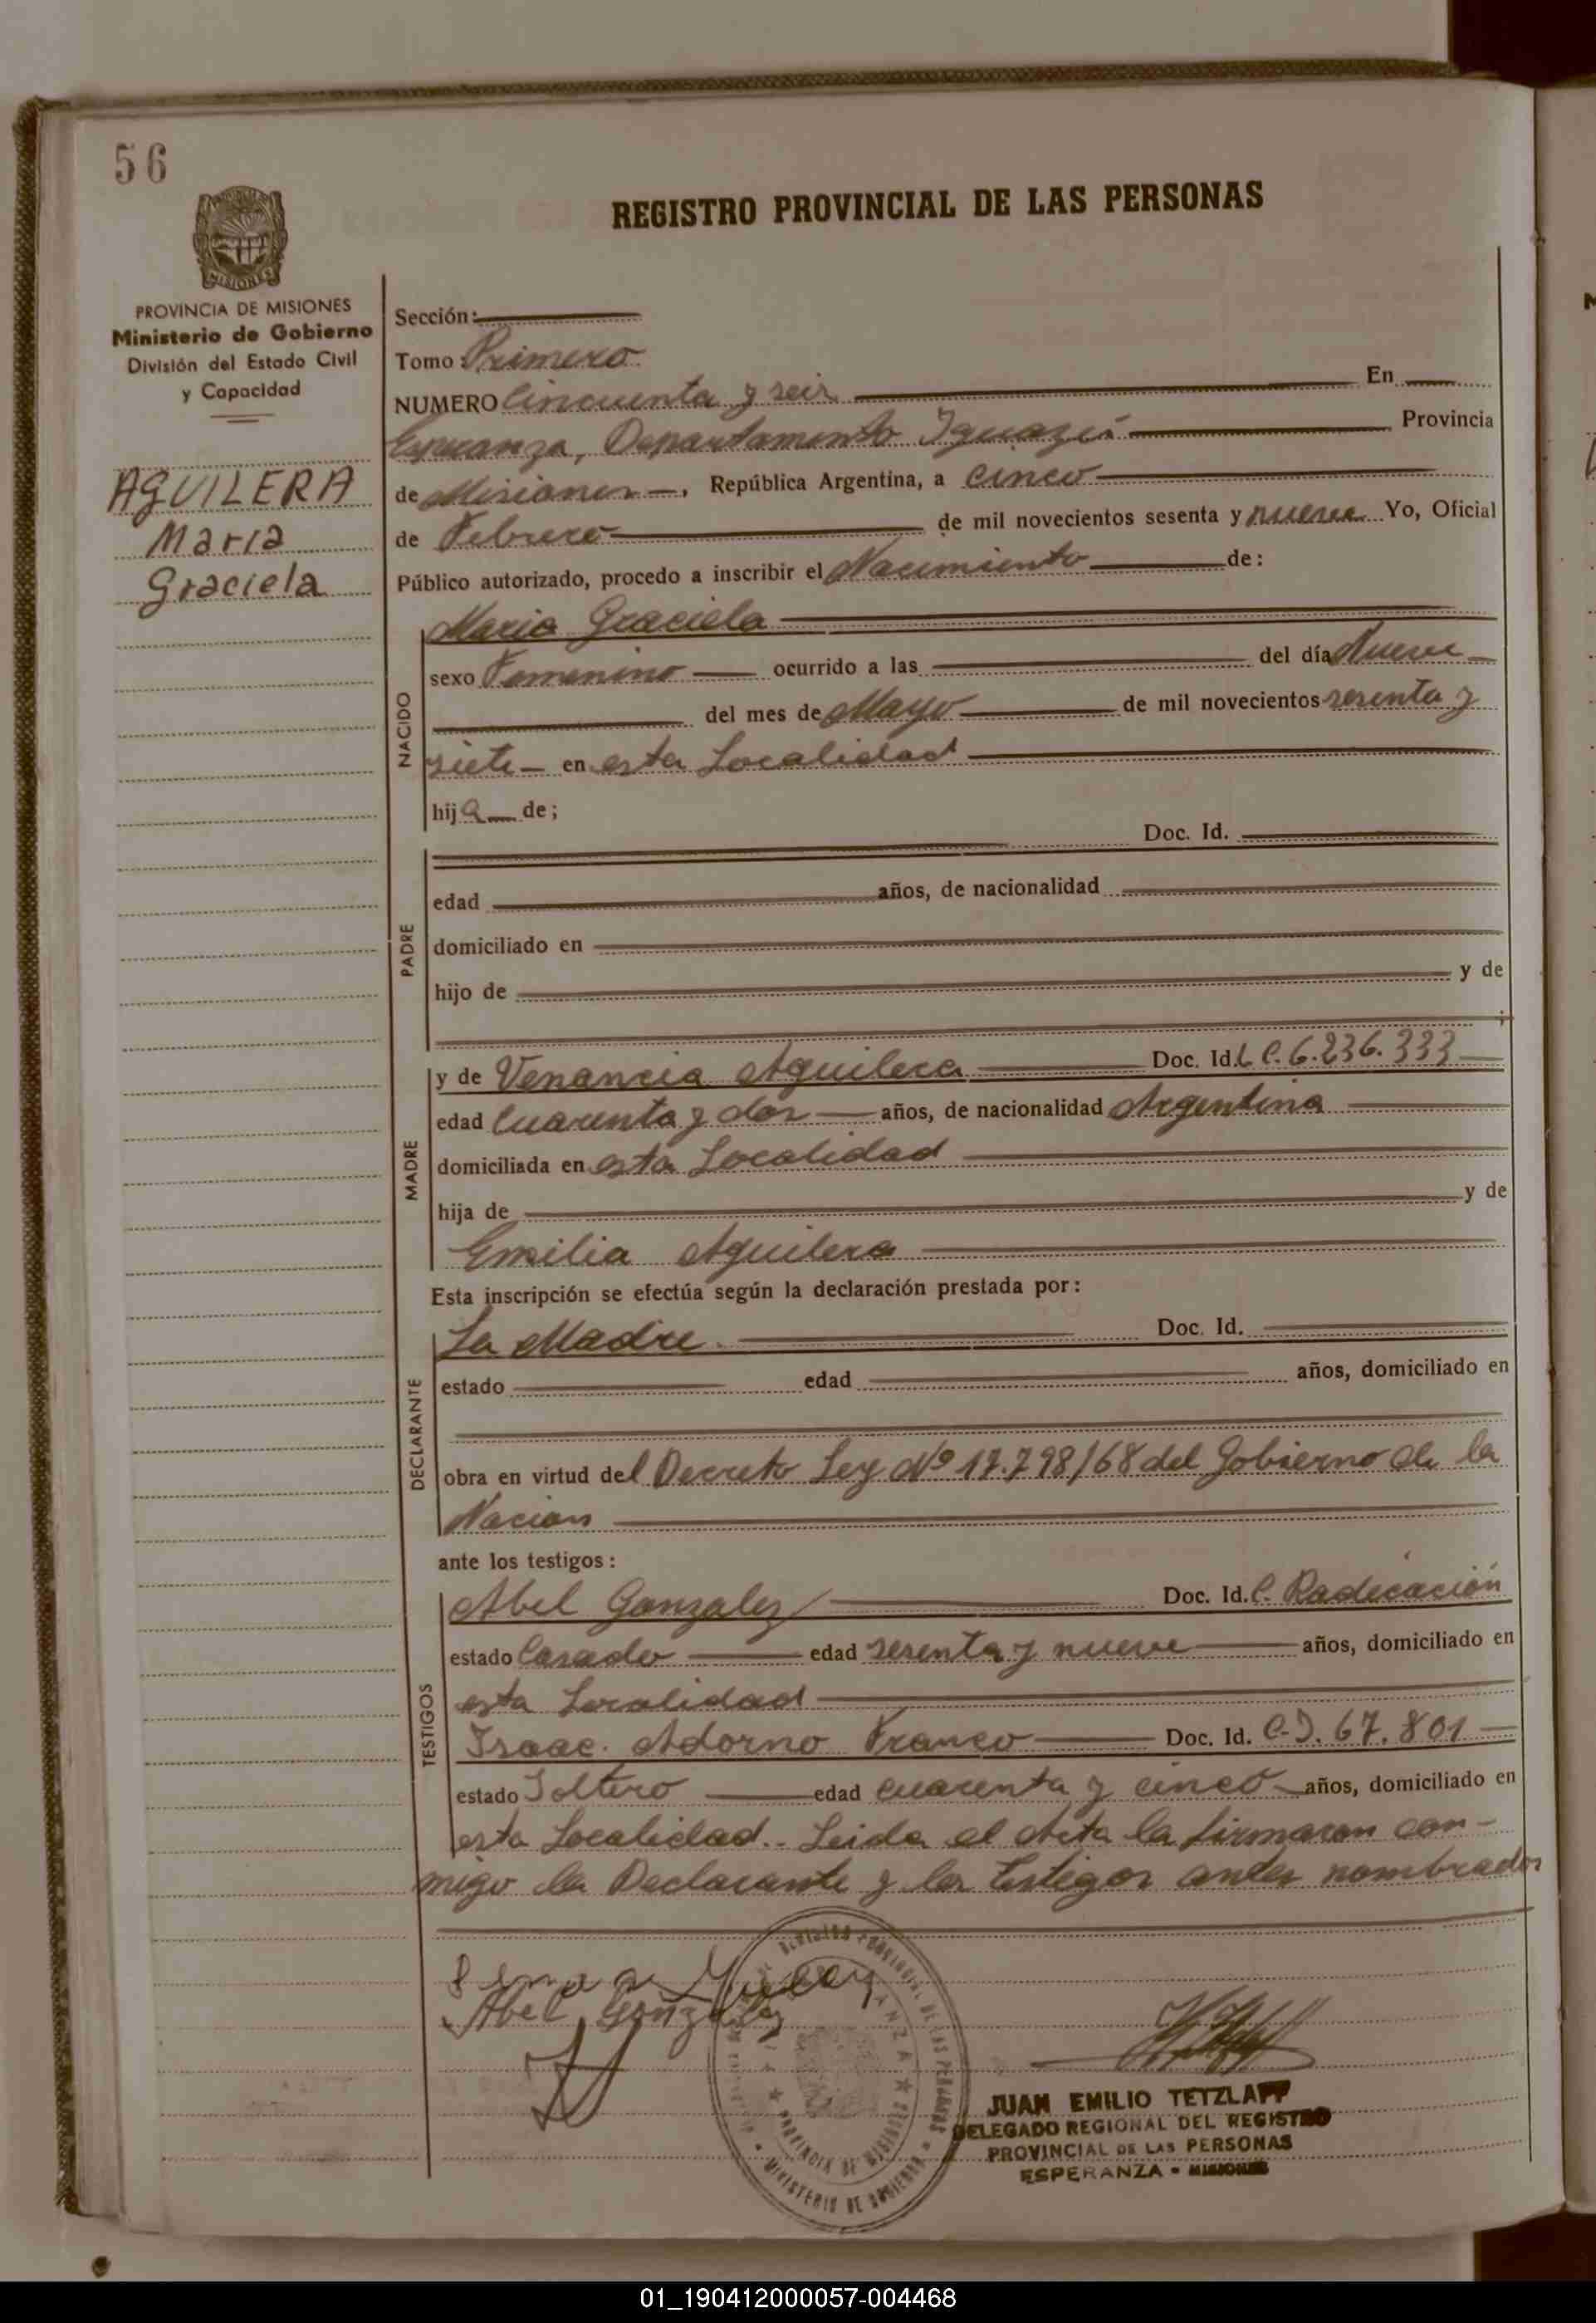 56
REGISTRO PROVINCIAL DE LAS PERSONAS
MISIONES
PROVINCIA DE MISIONES
Ministerio de Gobierno
División del Estado Civil
y Capacidad
AGUILERA
Maria
Graciela
Sección:
Tomo: Primero
NUMERO Cincuenta y seis En
Esperanza, Departamento Iguazú Provincia
de Misiones, República Argentina, a cinco
de Febrero de mil novecientos sesenta y nueve Yo, Oficial
Público autorizado, procedo a inscribir el Nacimiento de:
NACIDO
Maria Graciela
sexo Femenino ocurrido a las del día Nueve
del mes de Mayo de mil novecientos sesenta y
siete en esta Localidad
hija de;
PADRE
Doc. Id.
edad años, de nacionalidad
domiciliado en
hijo de y de
;
MADRE
y de Venancia Aguilera Doc. Id. L C. 6.236.333
edad Cuarenta y dos años, de nacionalidad Argentina
domiciliada en esta Localidad
hija de y de
Emilia Aguilera
Esta inscripción se efectúa según la declaración prestada por:
DECLARANTE
La Madre. Doc. Id.
estado edad años, domiciliado en
obra en virtud del Decreto Ley Nº 17.798/68 del Gobierno de la
Nacion
ante los testigos:
TESTIGOS
Abel Gonzalez Doc. Id. C. Radicación
estado Casado edad sesenta y nueve años, domiciliado en
esta Localidad
Isaac Adorno Franco Doc. Id. C.I. 67.801
estado Soltero edad cuarenta y cinco años, domiciliado en
esta Localidad.- Leida el Acta la firmaron con-
migo la Declarante y los testigos antes nombrados
Abel Gonzalez
JUAN EMILIO TETZLAFF
DELEGADO REGIONAL DEL REGISTRO
PROVINCIAL DE LAS PERSONAS
ESPERANZA - MISIONES
PROVINCIA DE MISIONES
MINISTERIO DE GOBIERNO
01_190412000057-004468